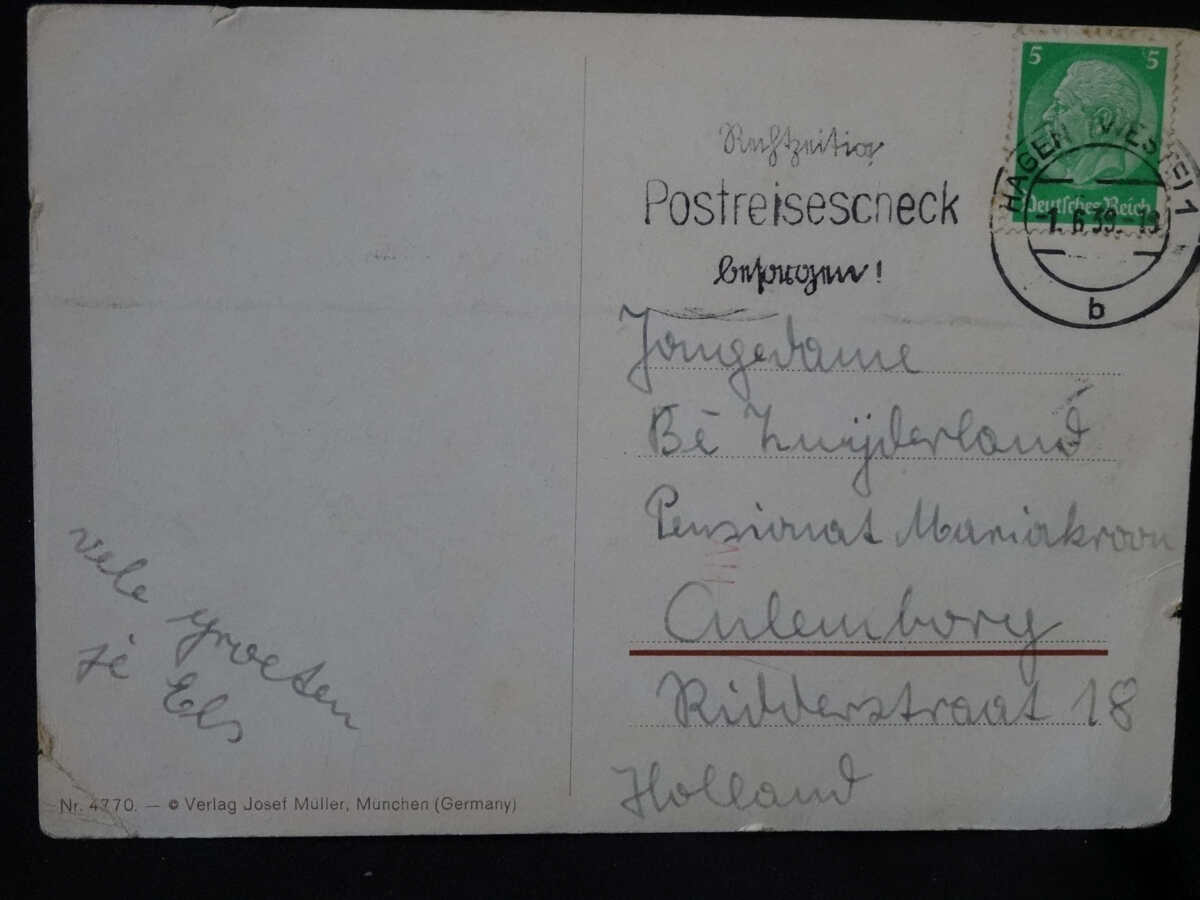 5 5
Deutsches Reich
HAGEN (WESTF) 1
-1.6.39.-19
b
Rechtzeitig
Postreisescheck
besorgen!
Jongedame
Bé Zuijderland
Pensionat Mariakroon
Culemborg
Ridderstraat 18
Holland
vele groeten
je Els
Nr. 4770. — © Verlag Josef Müller, München (Germany)